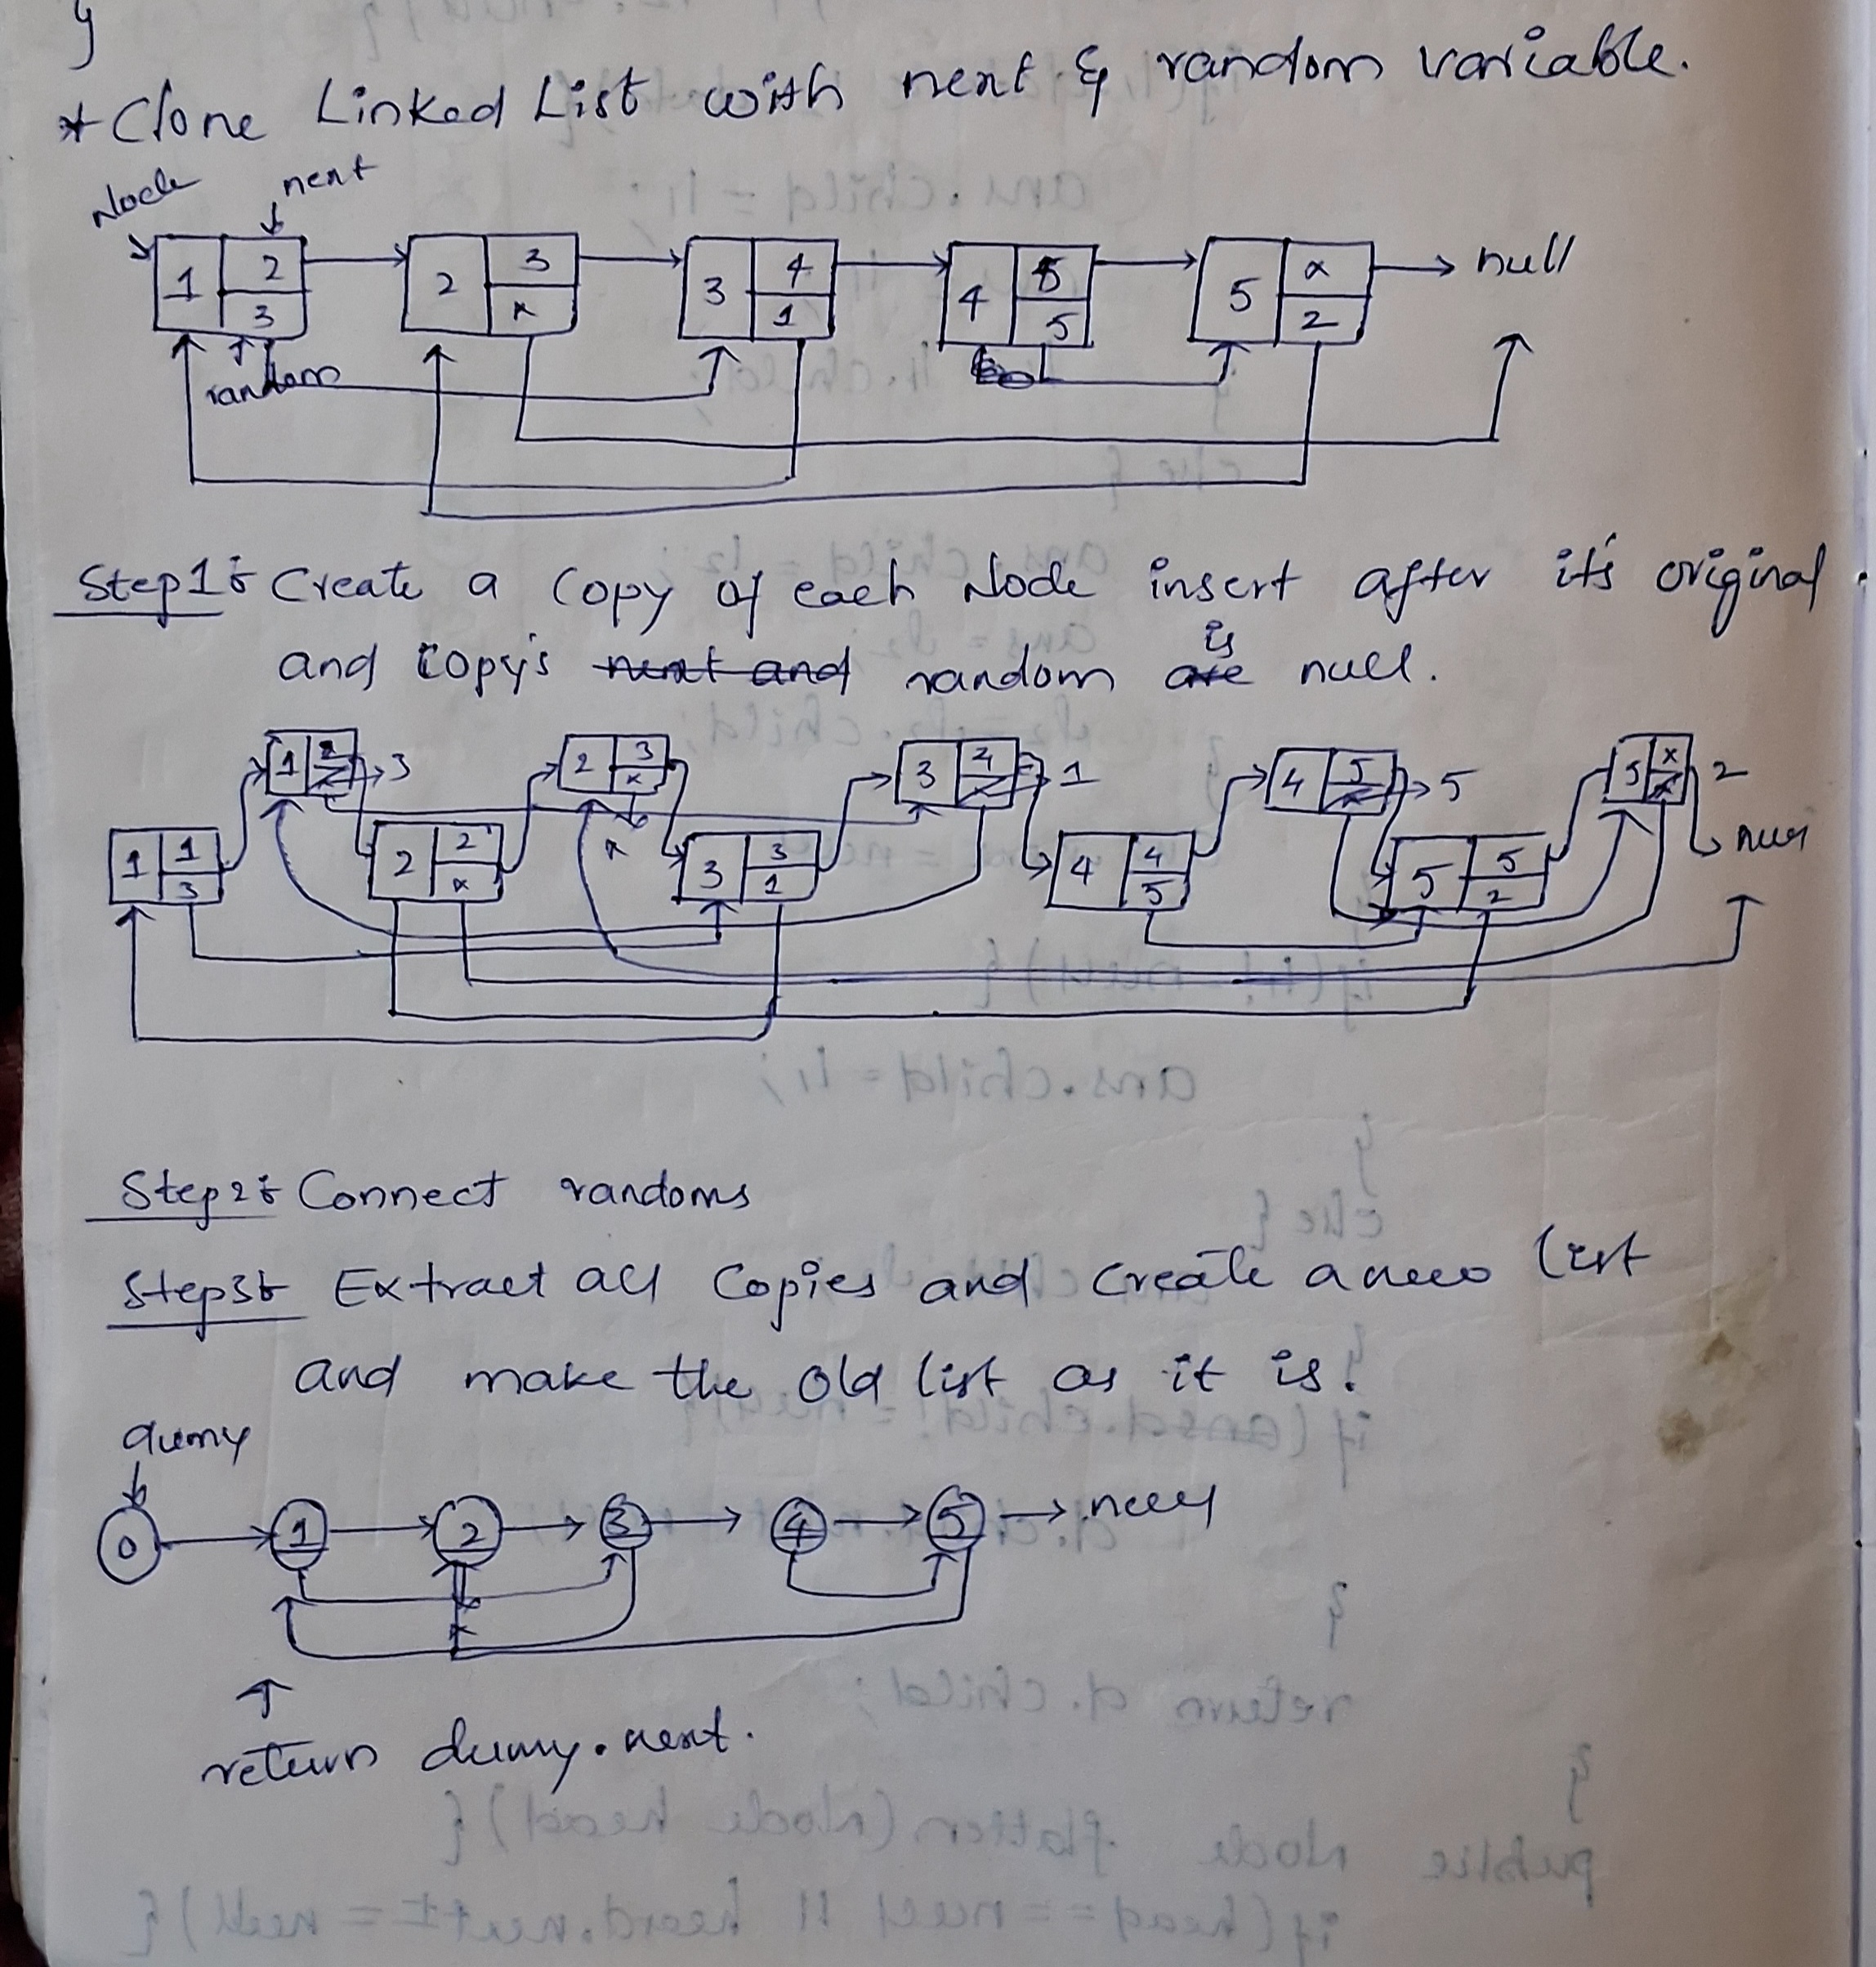 }
* Clone Linked List with next & random variable.
Node next
1 2 3 2 3 x 3 4 1 4 5 5 5 x 2 null
random
Step 1: Create a copy of each Node insert after it's original
and copy's next and random are is null.
1 2 3 2 3 x 3 4 1 4 5 5 5 x 2
1 1 3 2 2 x x 3 3 1 4 4 5 5 5 2 null
Step 2: Connect randoms
Step 3: Extract all Copies and Create a new list
and make the old list as it is.
dumy
0 1 2 3 4 5 null
x
return dumy.next.